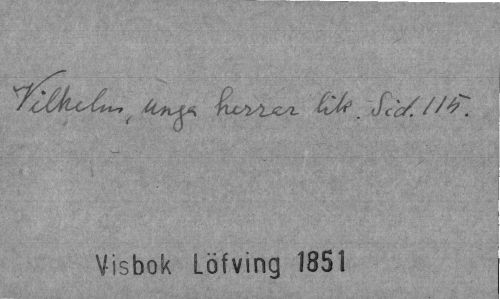 Vilhelm, unga herrar lik. Sid. 115.
Visbok Löfving 1851